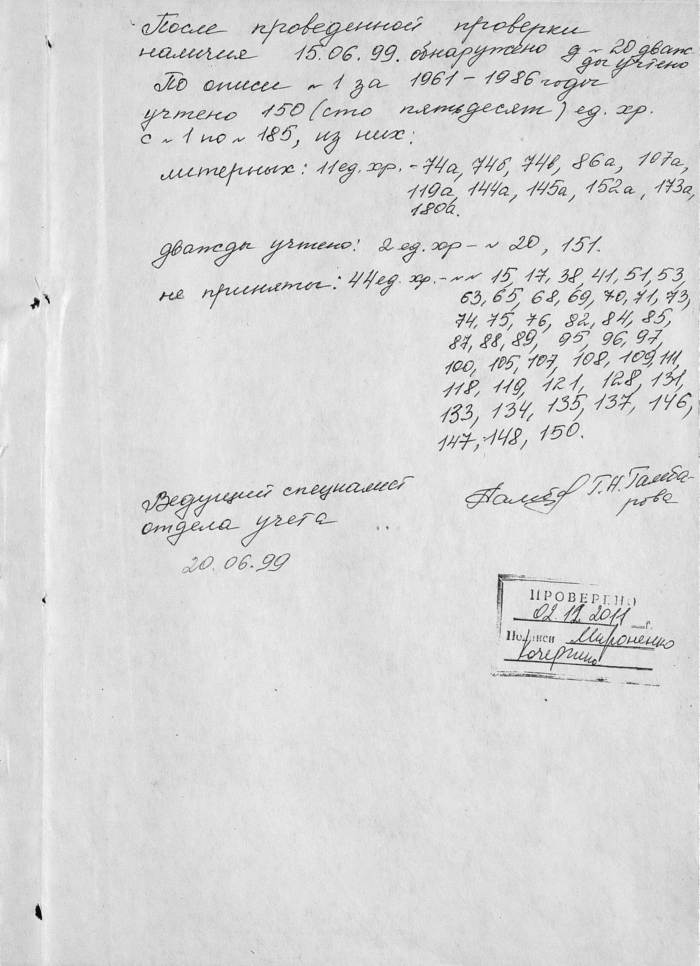 После проведенной проверки
наличия 15.06.99. обнаружено д ~ 20 дваж-
ды учтено
По описи ~ 1 за 1961 - 1986 годы
учтено 150 (сто пятьдесят) ед. хр.
с ~ 1 по ~ 185, из них:
литерных: 11 ед. хр. - 74а, 74б, 74в, 86а, 107а,
119а, 144а, 145а, 152а, 173а,
180а.
дважды учтено: 2 ед. хр - ~ 20, 151.
не приняты: 44 ед. хр. - ~~ 15, 17, 38, 41, 51, 53,
63, 65, 68, 69, 70, 71, 73,
74, 75, 76, 82, 84, 85,
87, 88, 89, 95, 96, 97,
100, 105, 107, 108, 109, 111,
118, 119, 121, 128, 131,
133, 134, 135, 137, 146,
147, 148, 150.
Ведущий специалист Г. Н. Гамба-
отдела учета рова
20.06.99
ПРОВЕРЕНО
02.12.2011 г.
Подписи Мироненко